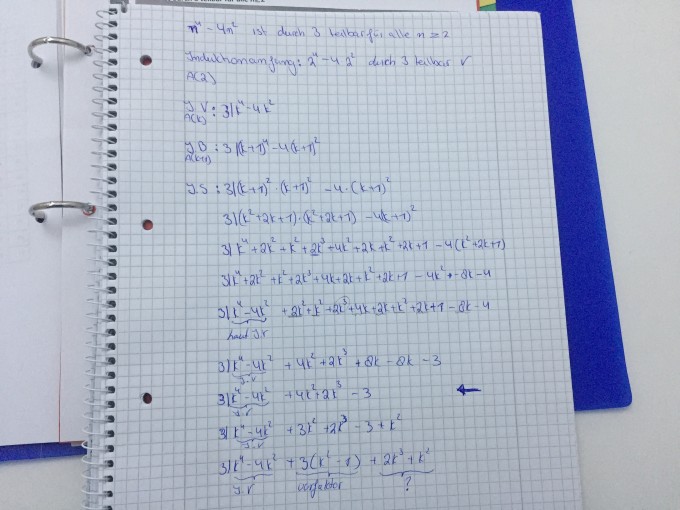 n⁴ - 4n² ist durch 3 teilbar für alle n ≥ 2
Induktionsanfang: 2⁴ - 4·2² durch 3 teilbar ✓
A(2)
I.V: 3|k⁴-4k²
A(k)
I.B: 3|(k+1)⁴-4(k+1)²
A(k+1)
I.S: 3|(k+1)²·(k+1)² -4·(k+1)²
3|(k²+2k+1)·(k²+2k+1) -4(k+1)²
3|k⁴+2k²+k²+2k³+4k²+2k+k²+2k+1 -4(k²+2k+1)
3|k⁴+2k²+k²+2k³+4k+2k+k²+2k+1 -4k²+-8k-4
3|k⁴-4k² +2k²+k²+2k³+4k+2k+k²+2k+1-8k-4
laut I.V
3|k⁴-4k² +4k²+2k³+8k-8k-3
I.V
3|k⁴-4k² +4k²+2k³-3 ←
I.V
3|k⁴-4k² +3k²+2k³-3+k²
I.V
3|k⁴-4k² +3(k²-1)+2k³+k²
I.V Vorfaktor ?